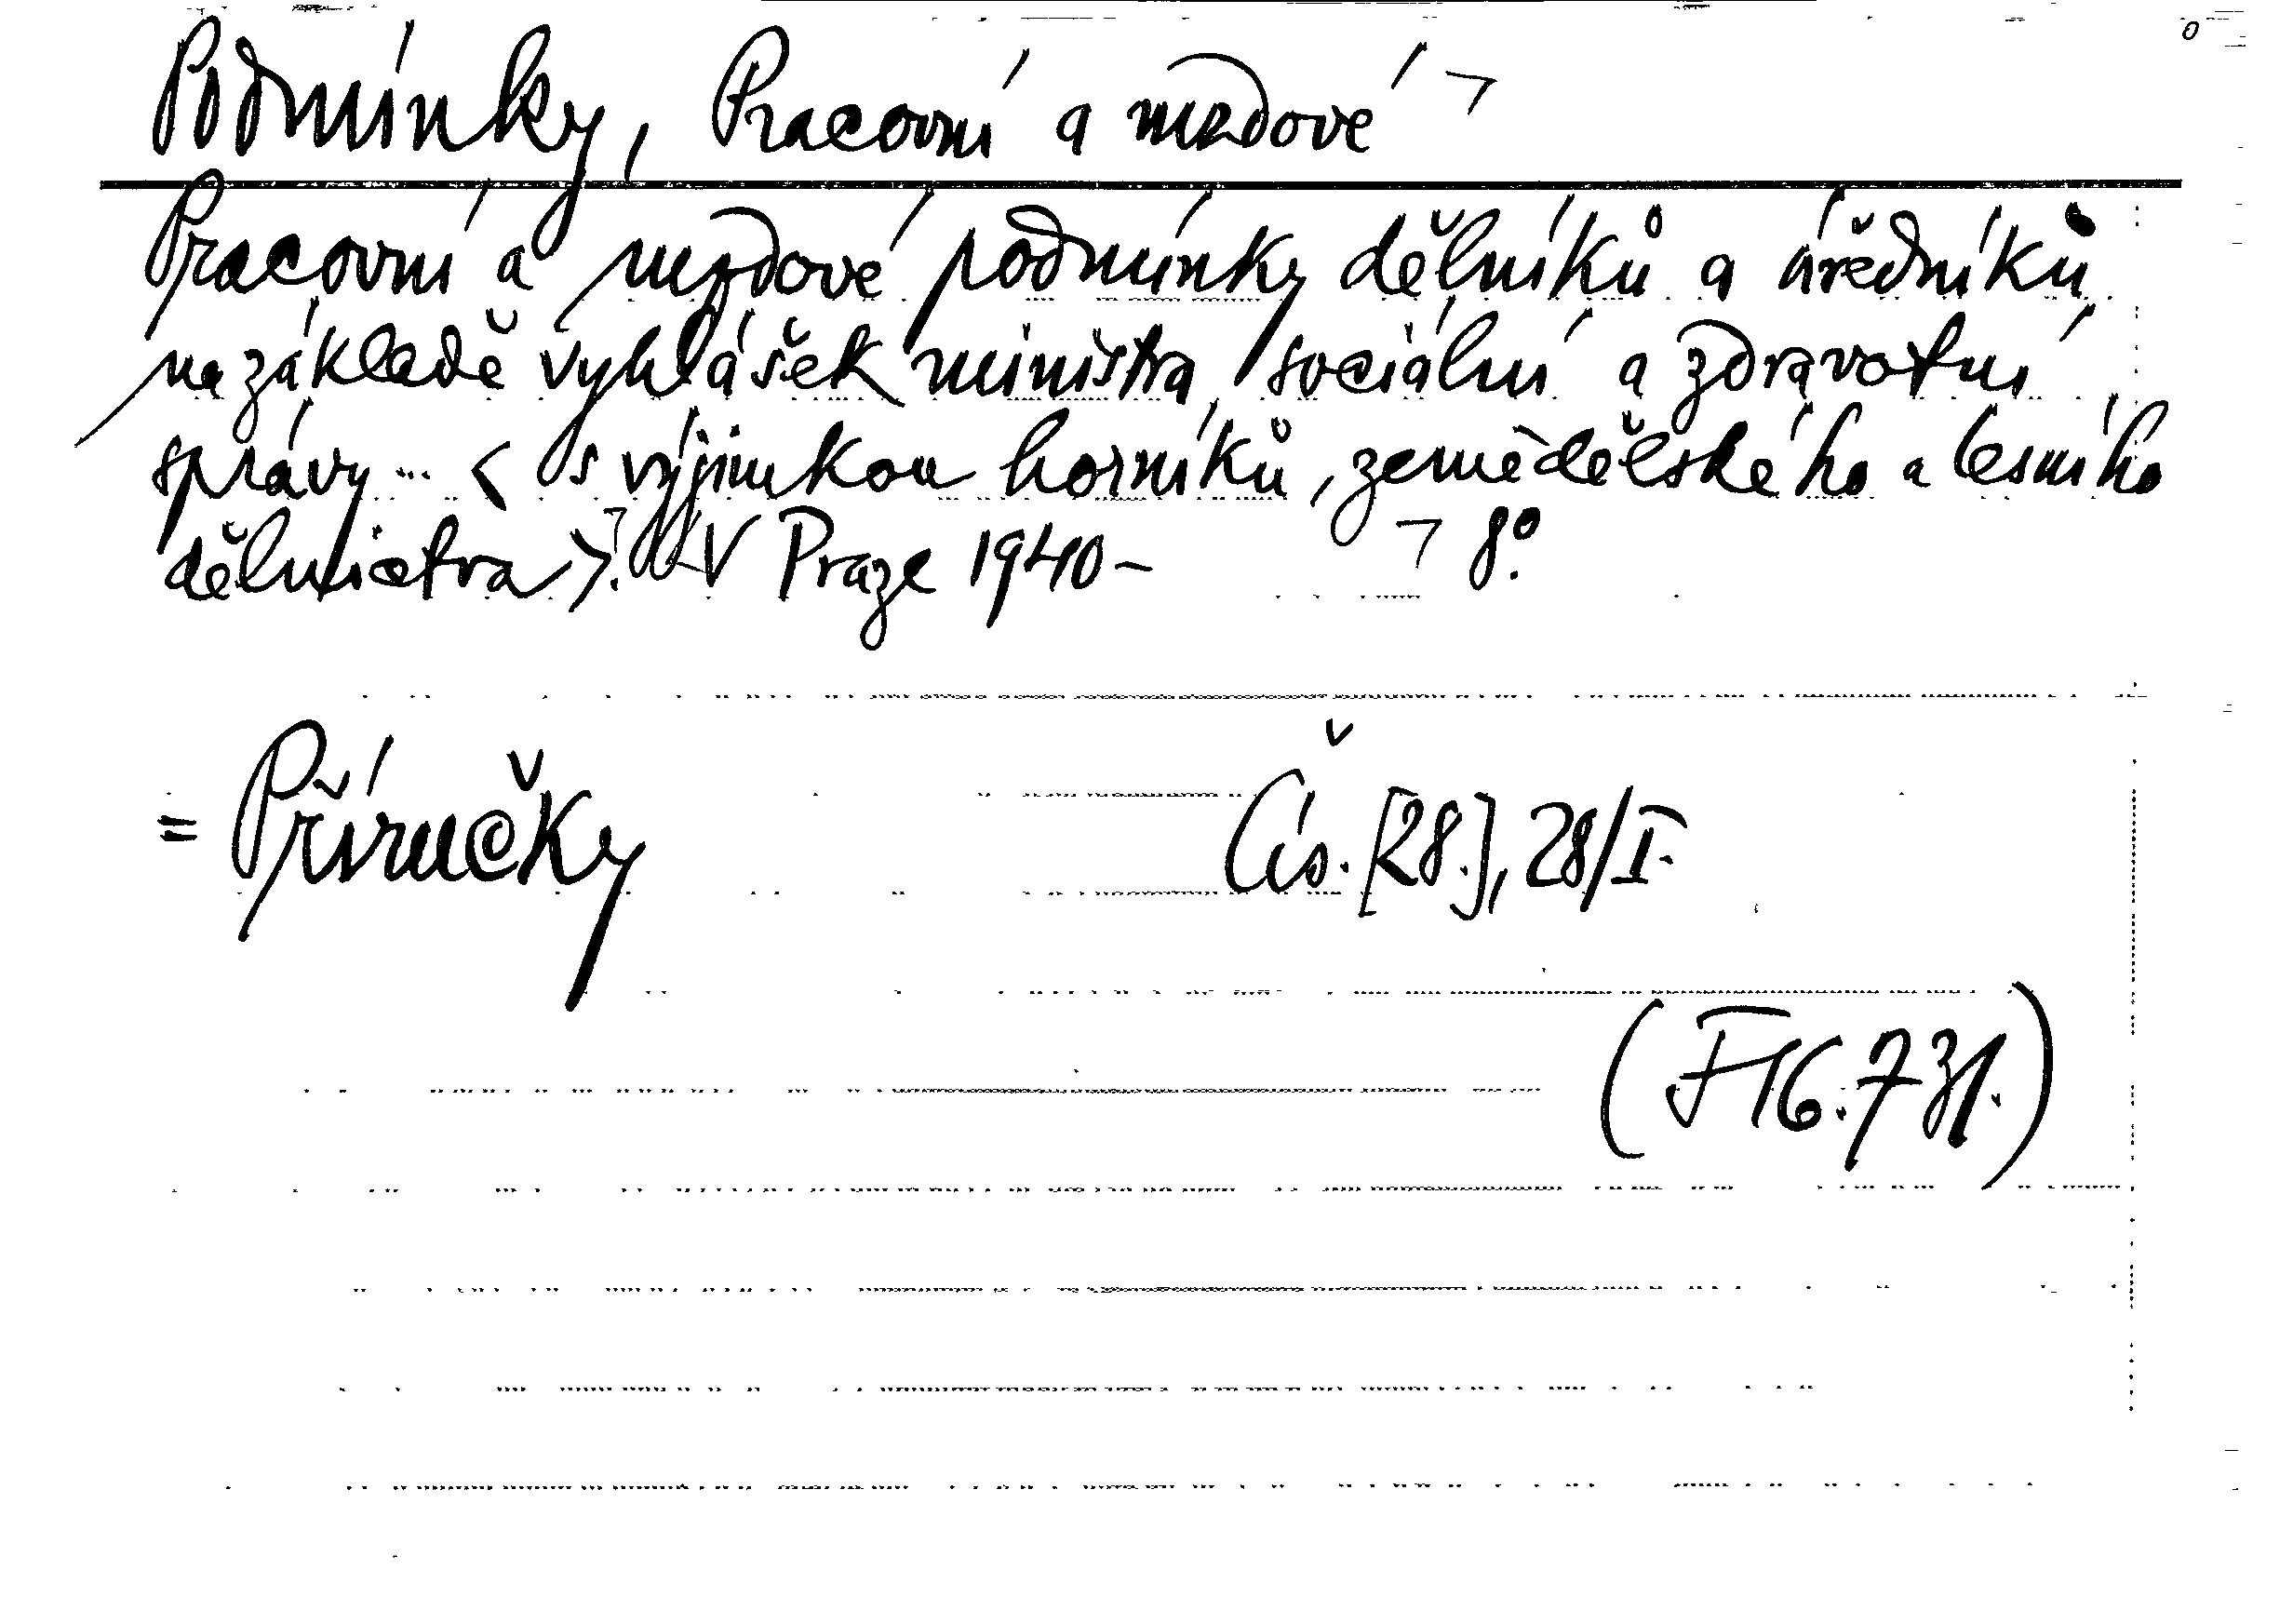 Podmínky, Pracovní a mzdové ¬
Pracovní a mzdové podmínky dělníků a úředníků
na základě vyhlášek ministra sociální a zdravotní
správy ... < s výjimkou horníků, zemědělského a lesního
dělnictva >. V Praze 1940- ¬ 8°.
= Příručky Čís. [28.], 28/I.
(F 16.731.)